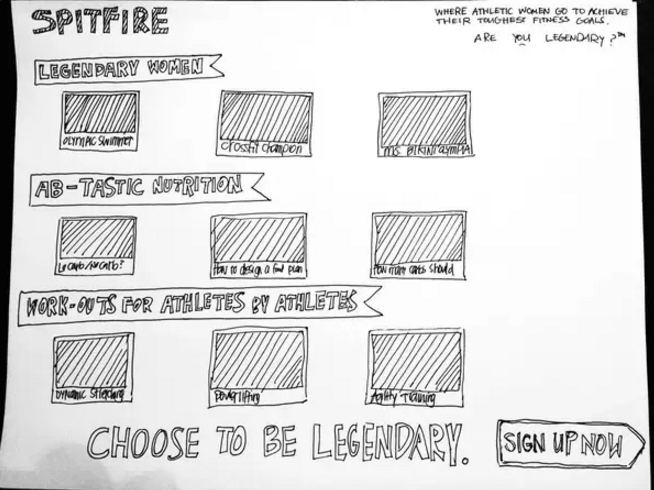 SPITFIRE
WHERE ATHLETIC WOMEN GO TO ACHIEVE
THEIR TOUGHEST FITNESS GOALS.
ARE YOU LEGENDARY?™
LEGENDARY WOMEN
OLYMPIC SWIMMER
CROSSFIT CHAMPION
MS. BIKINI OLYMPIA
AB-TASTIC NUTRITION
Lo carb/No carb?
How to design a food plan
How many carbs should
WORK-OUTS FOR ATHLETES BY ATHLETES
Dynamic Stretching
Powerlifting
Agility Training
CHOOSE TO BE LEGENDARY.
SIGN UP NOW